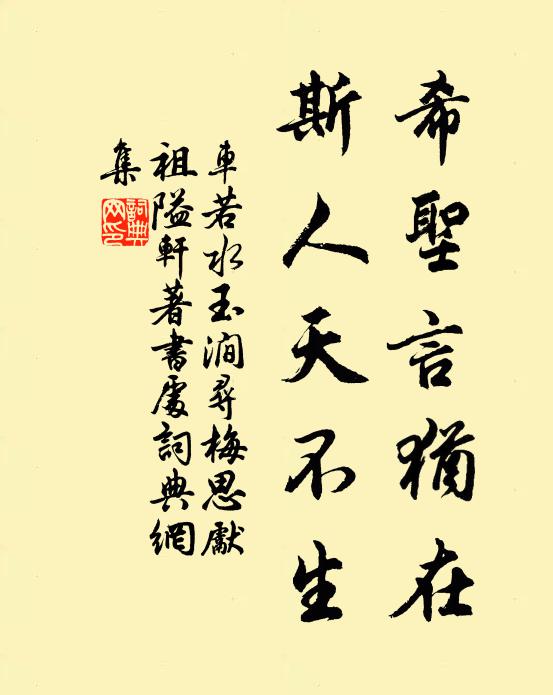 希聖言猶在
斯人天不生
車若水玉澗尋梅思獻
祖隘軒著書處詞典網
集
詞典網印